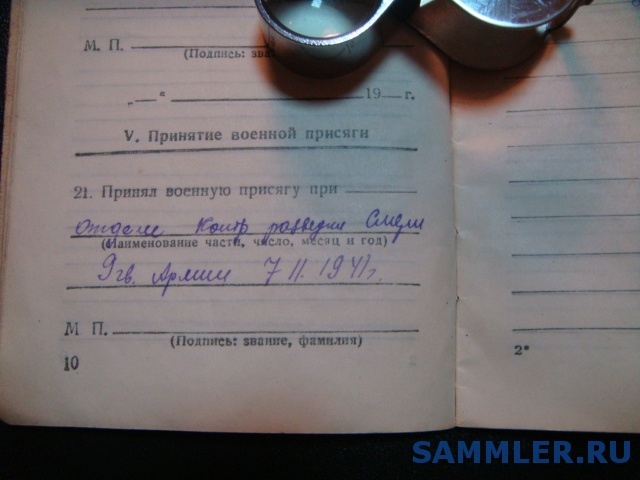 М. П.
(Подпись: зва
„ “ 19 г.
V. Принятие военной присяги
21. Принял военную присягу при
отделе контр разведки Смерш
(Наименование части, число, месяц и год)
9 гв. Армии 7 11. 1941 г.
М П.
(Подпись: звание, фамилия)
10
2*
SAMMLER.RU